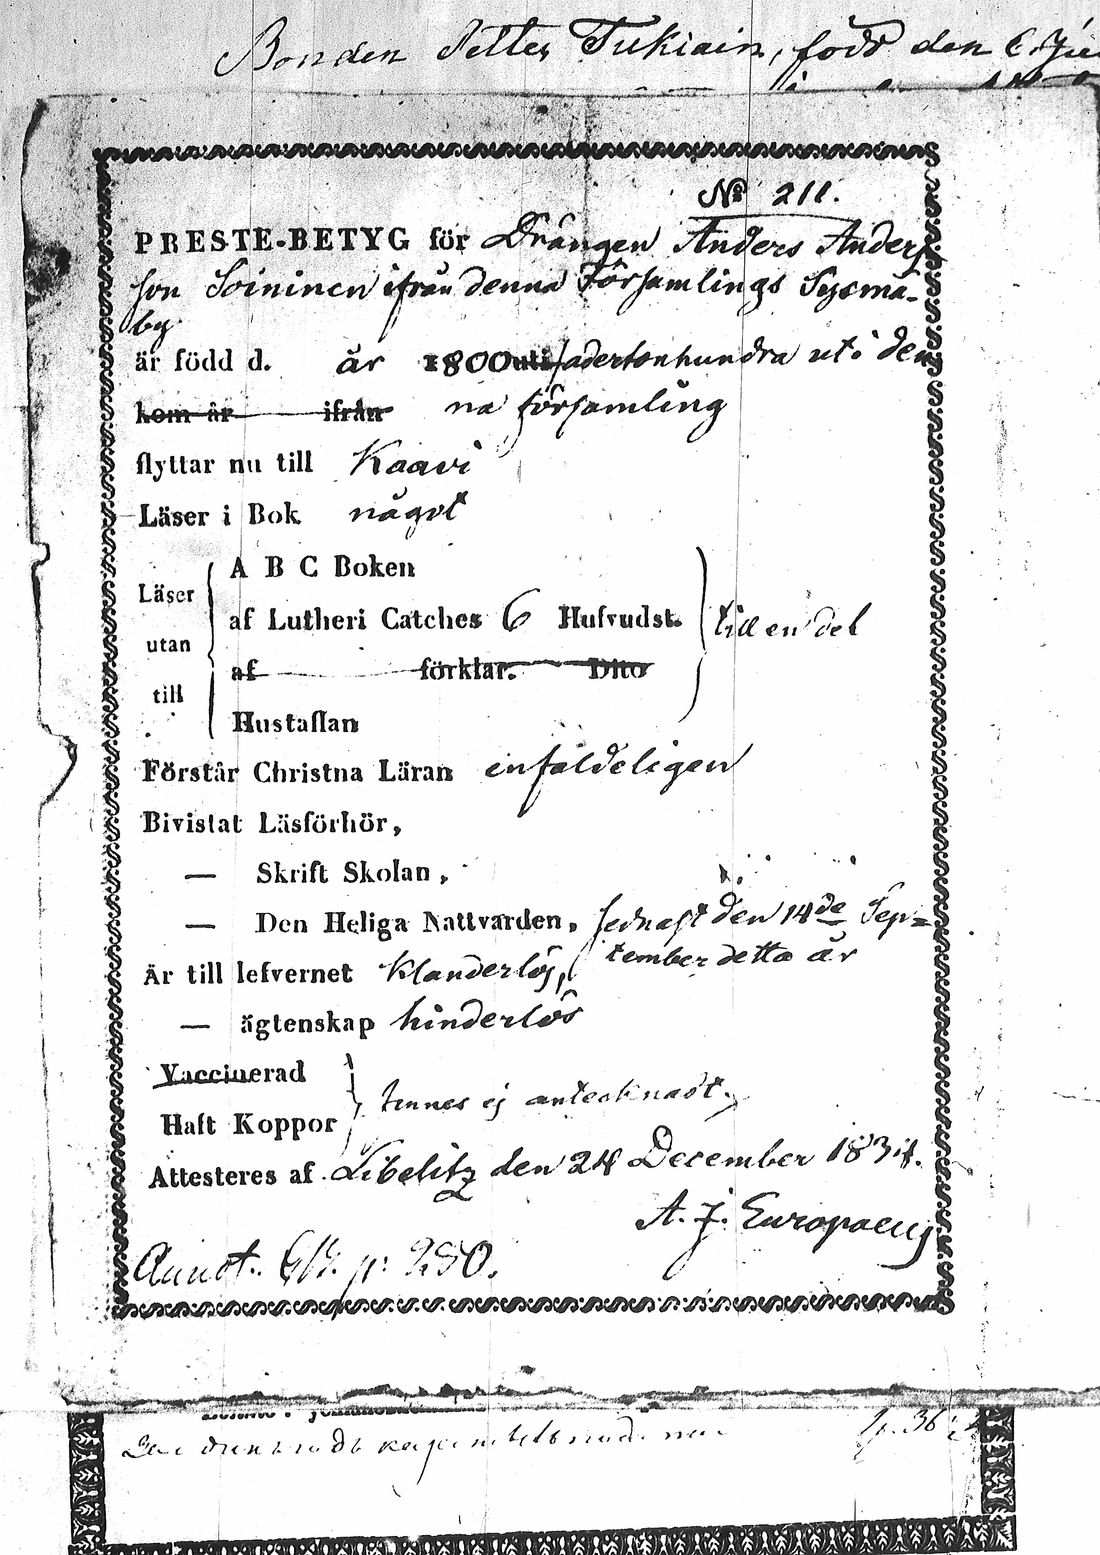 Bonden Petter Tukiain, född den 6
No 211.
PRESTE-BETYG för Drängen Anders Anders
son Soininen ifrån denna Församlings Sysmä-
by
är född d. år 1800 uti adertonhundra uti den
kom år ifrån na församling
flyttar nu till Kaavi
Läser i Bok något
A B C Boken
Läser
af Lutheri Catches 6 Hufvudst. till en del
utan
af förklar. Dito
till
Hustaflan
Förstår Christna Läran enfaldeligen
Bivistat Läsförhör,
— Skrift Skolan,
— Den Heliga Nattvarden, sednast den 14de Sep=
tember detta år
Är till lefvernet Klanderlös,
— ägtenskap hinderlös
Vaccinerad
finnes ej antecknadt.
Haft Koppor
Attesteres af Libelitz den 24 December 1834.
A. J. Europaeus
Annot. p. 280.
p. 36